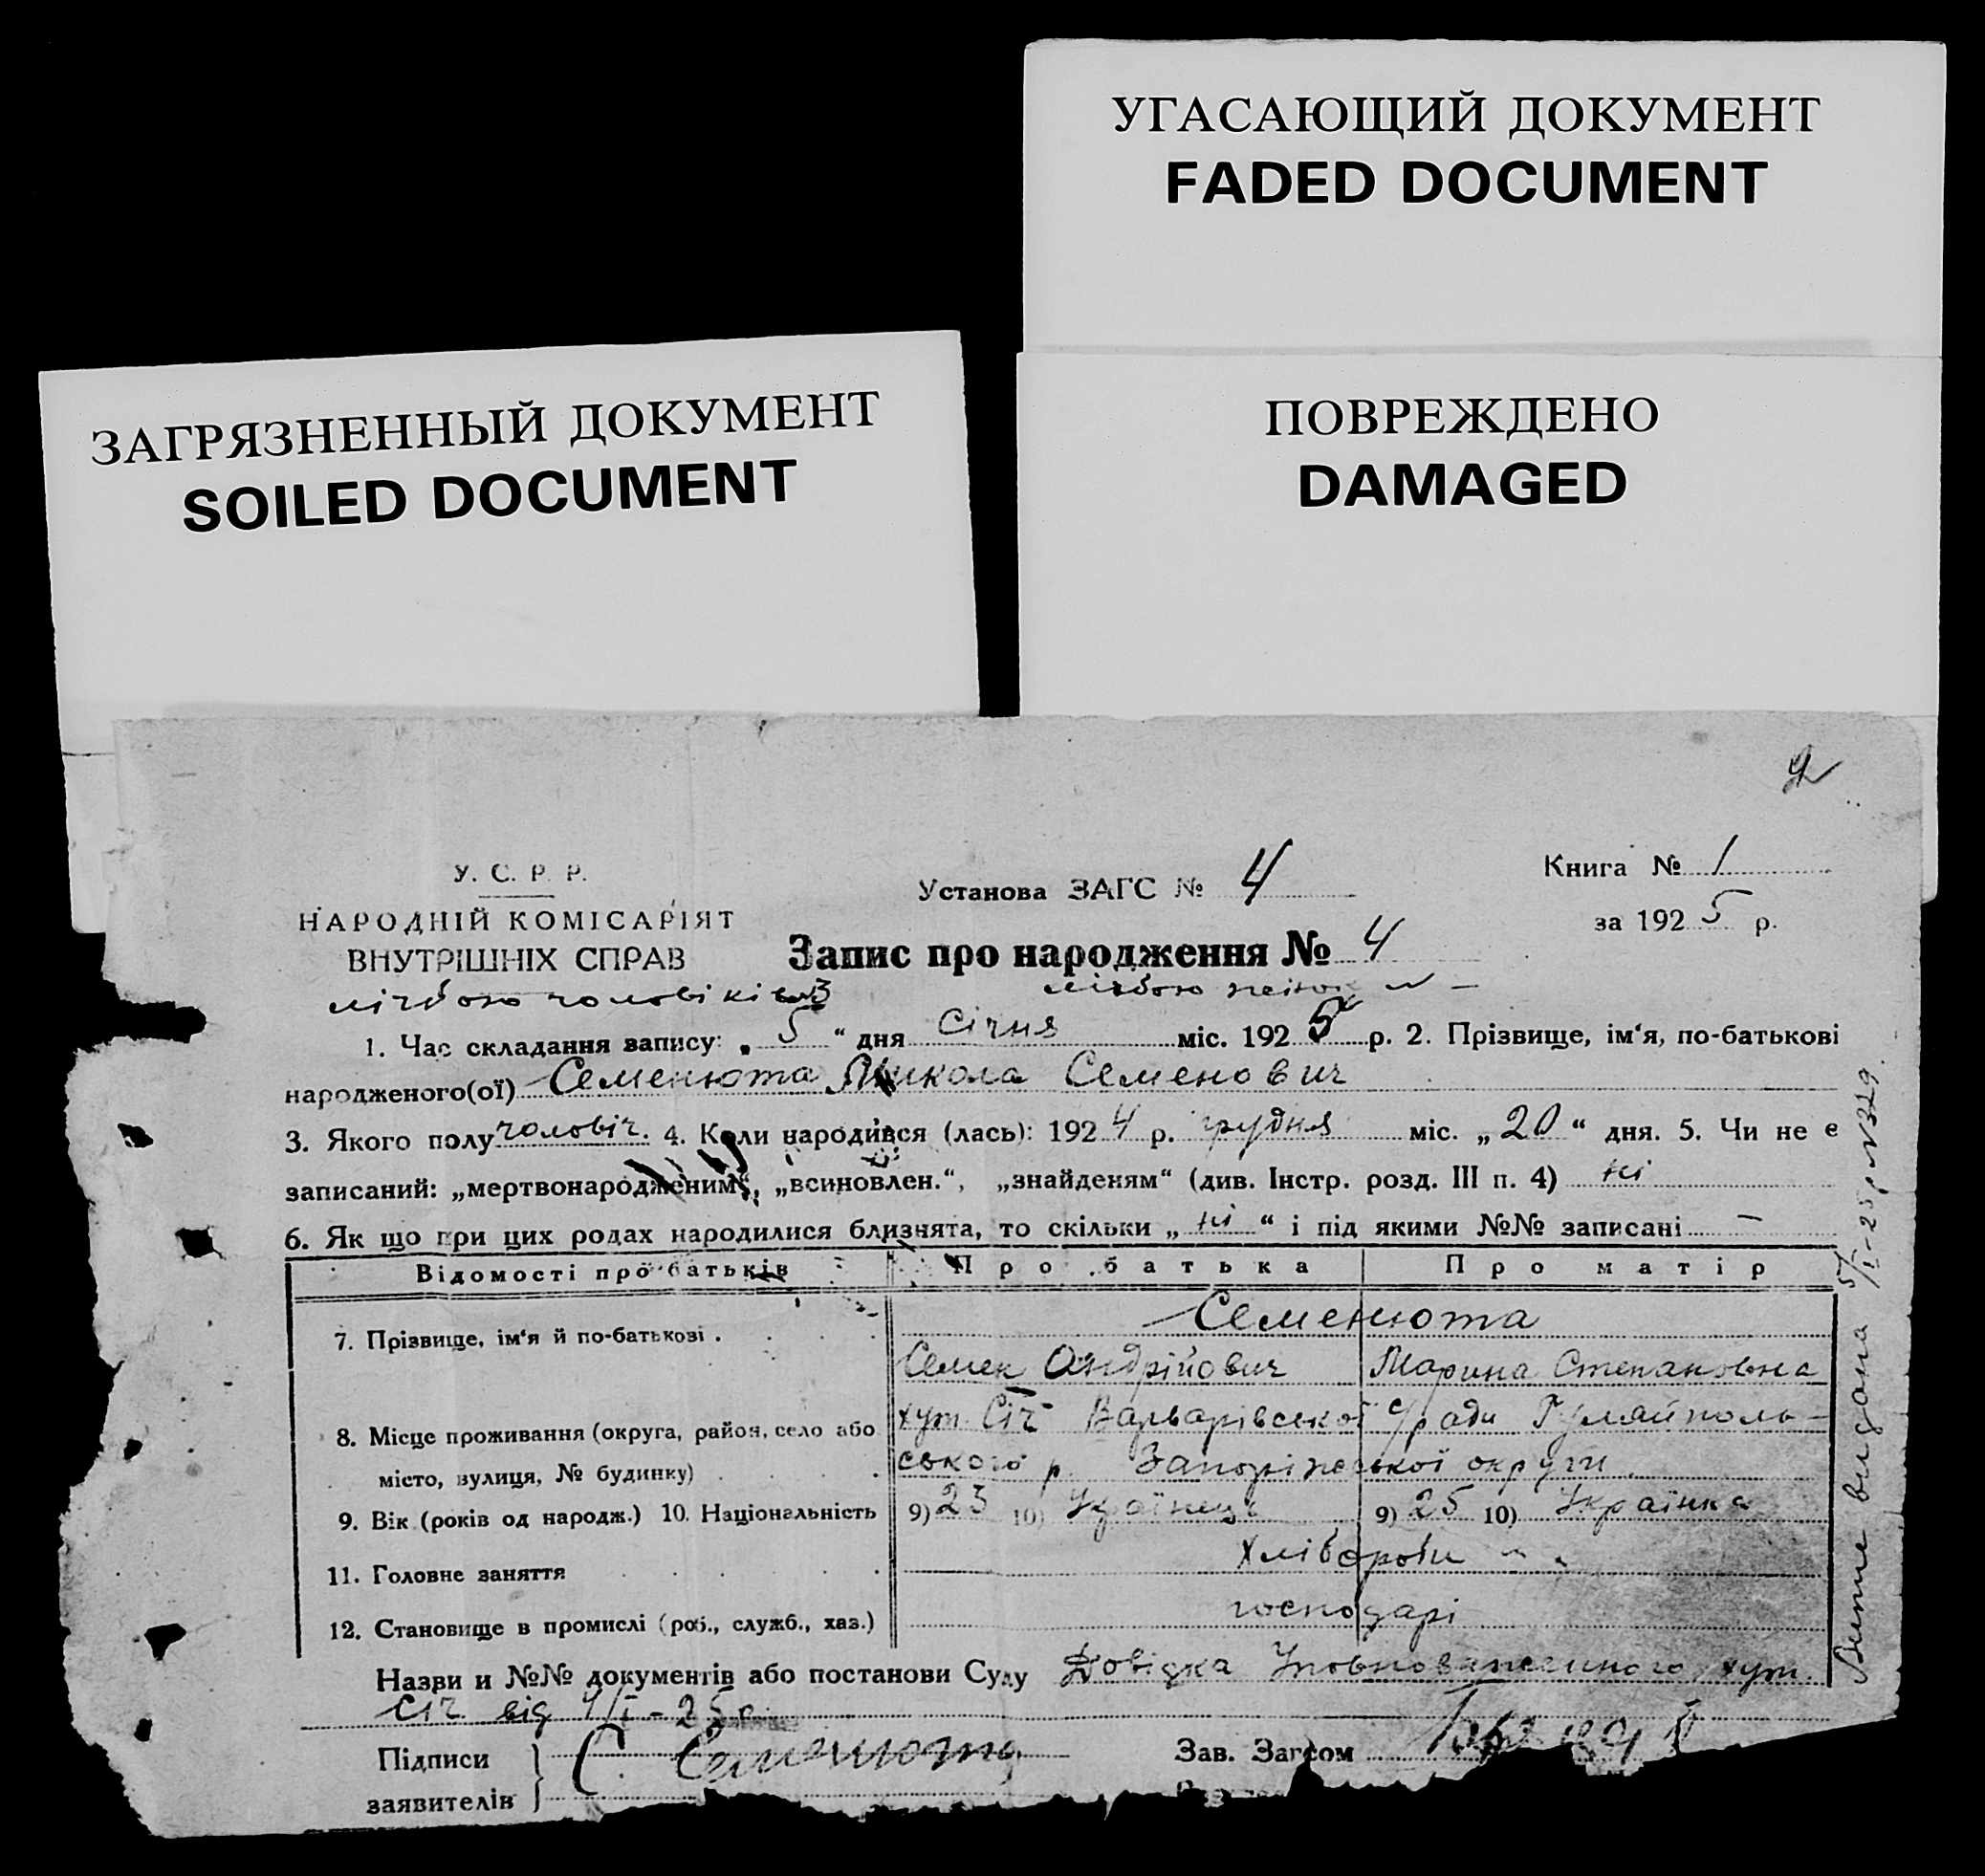 УГАСАЮЩИЙ ДОКУМЕНТ
FADED DOCUMENT
ЗАГРЯЗНЕННЫЙ ДОКУМЕНТ
SOILED DOCUMENT
ПОВРЕЖДЕНО
DAMAGED
У. С. Р. Р.
НАРОДНІЙ КОМІСАРІЯТ
ВНУТРІШНІХ СПРАВ
Установа ЗАГС № 4
Книга № 1
за 1925 р.
Запис про народження № 4
лічбою чоловіків 3 лічбою жінок № —
1. Час складання запису: „5“ дня Січня міс. 1925 р. 2. Прізвище, ім‘я, по-батькові
народженого(ої) Семенюта Микола Семенович
3. Якого полу чоловіч. 4. Коли народився (лась): 1924 р. грудня міс. „20“ дня. 5. Чи не є
записаний: „мертвонародженим“, „всиновлен.“, „знайденям“ (див. Інстр. розд. III п. 4) ні
6. Як що при цих родах народилися близнята, то скільки „ні“ і під якими №№ записані —
Відомості про батьків Про батька Про матір
7. Прізвище, ім‘я й по-батькові . Семенюта
Семен Андрійович Марина Степановна
8. Місце проживання (округа, район, село або хут. Січ Варварівської с/ради Гуляйполь-
місто, вулиця, № будинку) ського р. Запоріжської округи.
9. Вік (років од народж.) 10. Національність 9) 23 10) Українець 9) 25 10) Українка
11. Головне заняття Хлібороби
12. Становище в промислі (роб., служб., хаз.) господарі
Назви и №№ документів або постанови Суду Довідка Уповноваженного хут.
Січ від 4/I-25 р.
Підписи
заявителів } С. Семенюта
Зав. Загсом
видана 5/I-25 р. № 329.